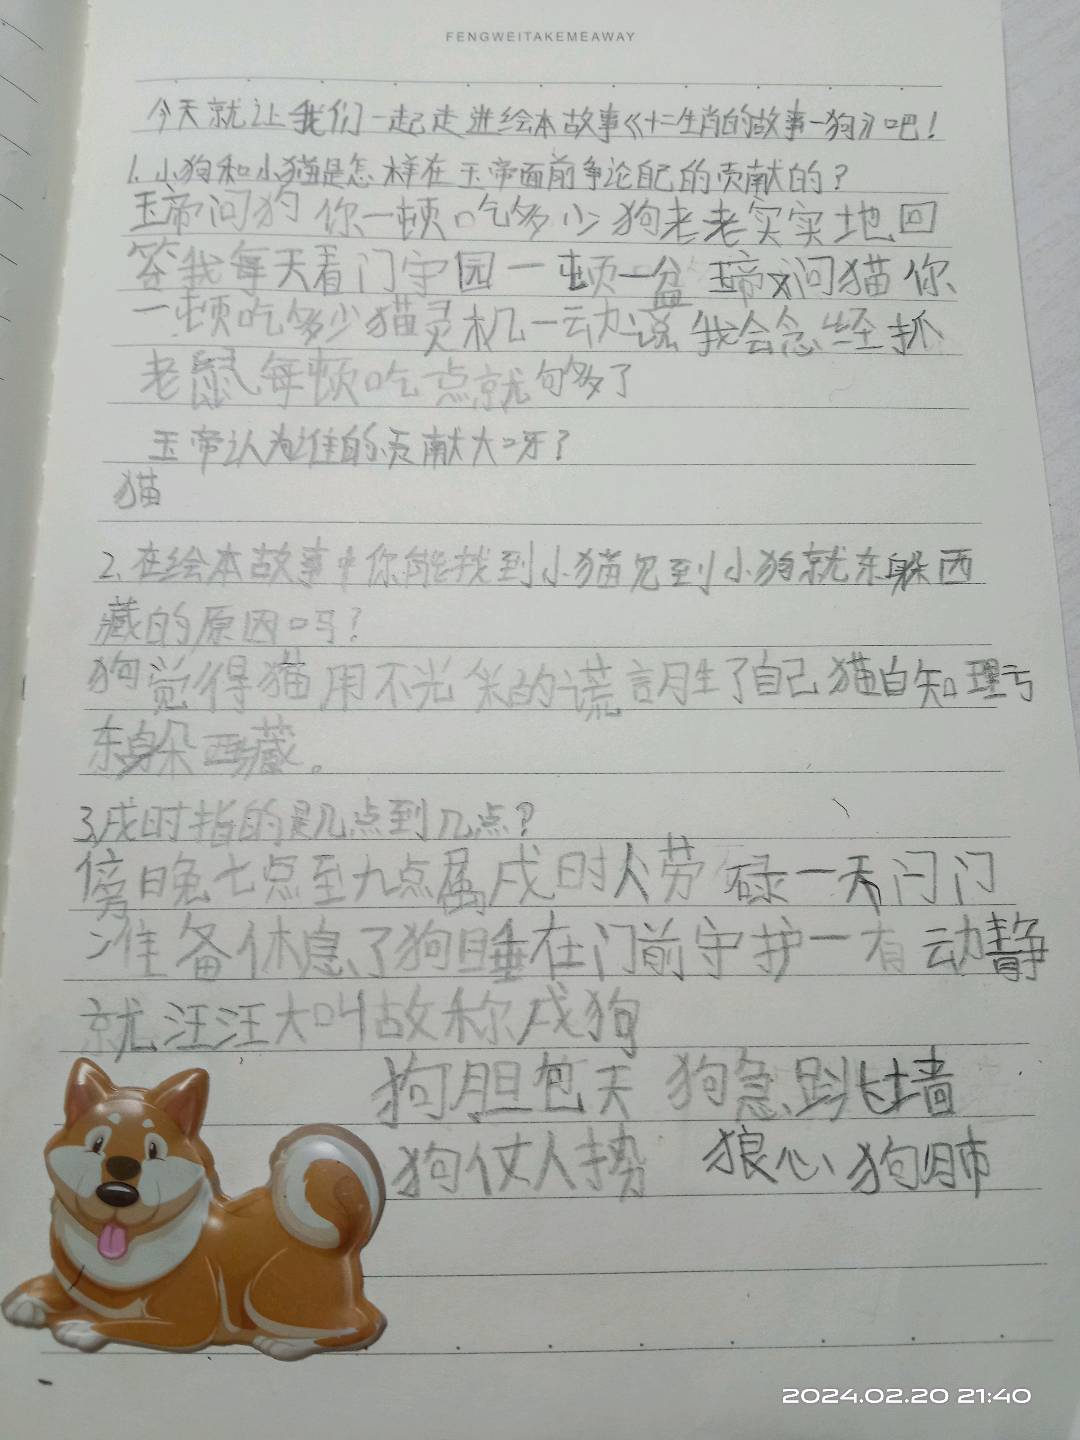 FENGWEITAKEMEAWAY
今天就让我们一起走进绘本故事《十二生肖的故事-狗》吧！
1.小狗和小猫是怎样在玉帝面前争论自己的贡献的？
玉帝问狗你一顿吃多少狗老老实实地回
答我每天看门守园一顿一盆玉帝又问猫你
一顿吃多少猫灵机一动说我会念经抓
老鼠每顿吃点就句多了
玉帝认为谁的贡献大呀？
猫
2.在绘本故事中你能找到小猫见到小狗就东躲西
藏的原因吗？
狗觉得猫用不光的谎言月生了自己猫自知理亏
东躲西藏。
3.戌时指的是几点到几点？
傍晚七点至九点属戌时人劳碌一天闩门
准备休息了狗睡在门前守护一有动静
就汪汪大叫故称戌狗
狗胆包天 狗急跳墙
狗仗人势 狼心狗肺
2024.02.20 21:40